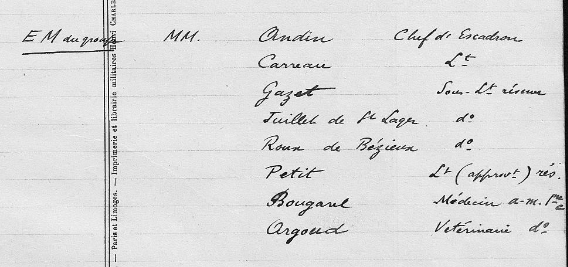 E M du groupe MM. Andin Chef d'Escadron
Carreau Lt
Gazet Sous-Lt réserve
Juillet de St Lager. do
Roux de Bézieux do
Petit Lt (approvt) rés.
Bougarel Médecin a-m. 1re c
Argoud Vetérinaire do
— Paris et Limoges. — Imprimerie et librairie militaires Henri CHARLES